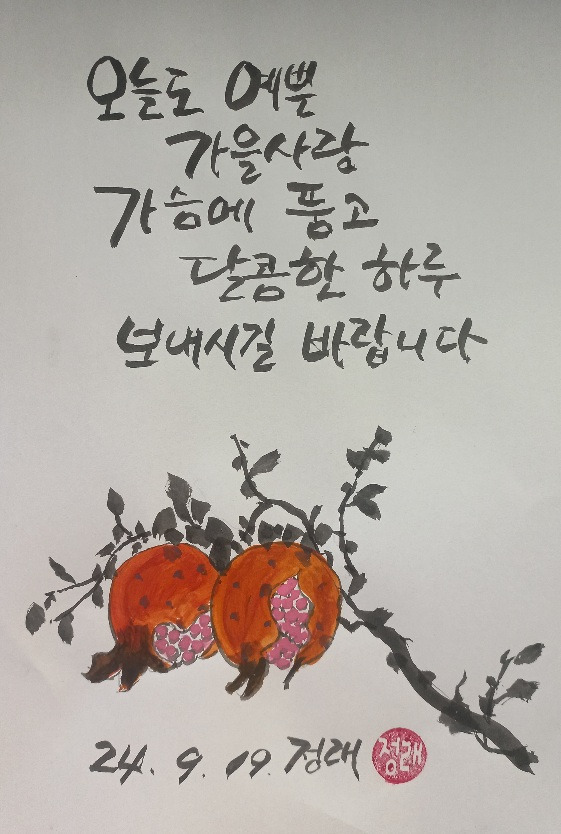 오늘도 예쁜
가을사랑
가슴에 품고
달콤한 하루
보내시길 바랍니다
24. 9. 19. 정래
정래